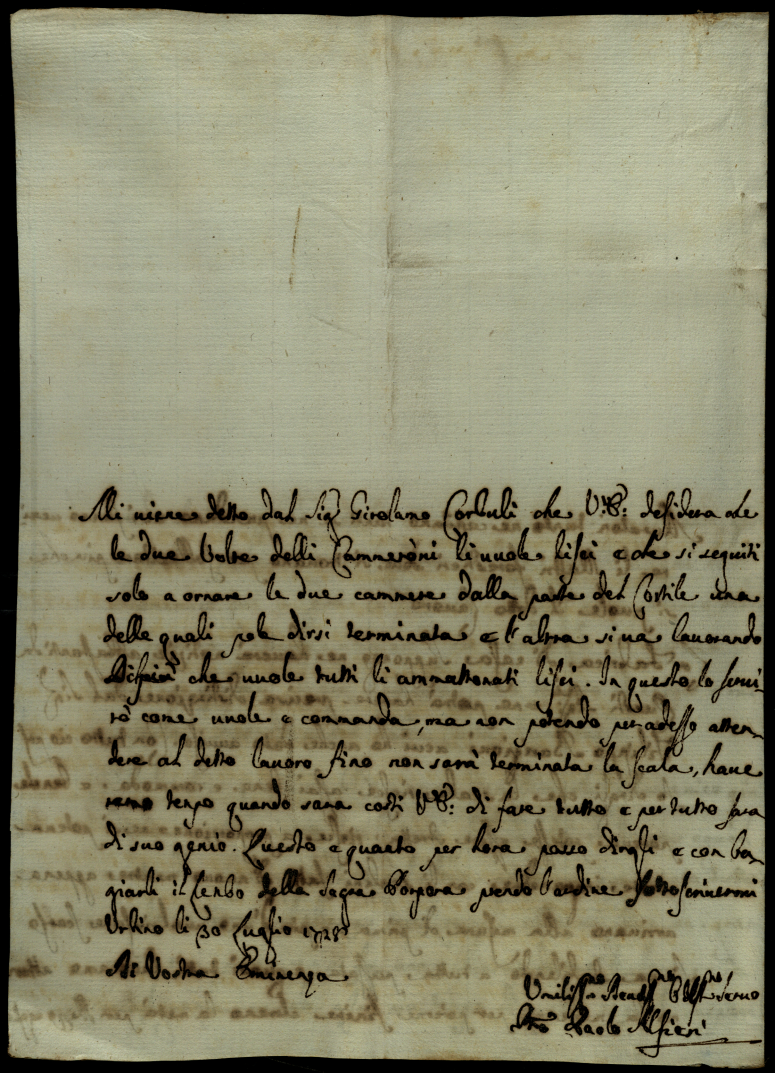 Mi viene detto dal Sig.r Girolamo Corboli che V: E: desidera che
le due Volte delli Cammeroni li vuole lisci e che si seguiti
solo a ornare le due cammere dalla parte del Cortile una
delle quali pole dirsi terminata e l'altra si va lavorando
che vuole tutti li ammattonati lisci. In questo lo servi=
rò come vuole e commanda, ma non potendo per adesso atten=
dere al detto lavoro fino non sarà terminata la scala, have
remo tempo quando sara costi V: E: di fare tutto e per tutto sara
di suo genio. Questo e quanto per hora posso dirgli e con ba=
giarli il Lembo della Sagra Porpora prendo l'ardine sottoscrivermi
Urbino li 30 Luglio 1728
Di Vostra Eminenza
Umiliss.mo Servo
Paolo Alfieri